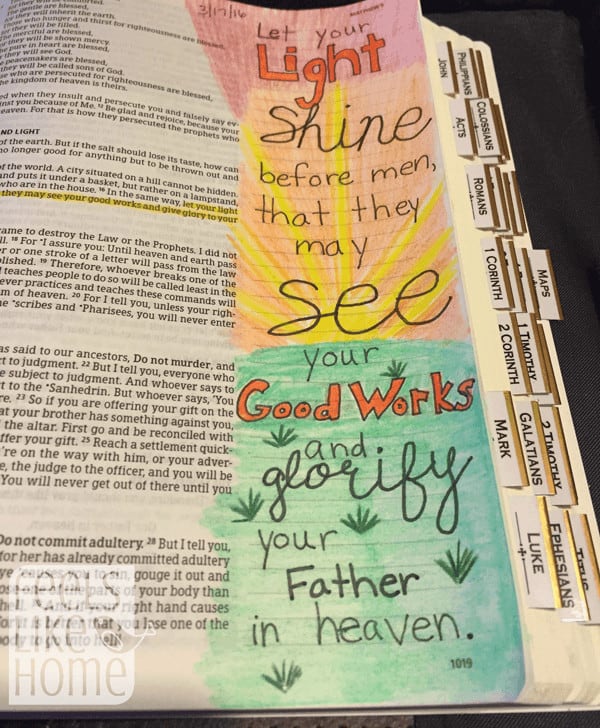 for they will be comforted.
gentle are blessed,
they will inherit the earth.
those who hunger and thirst for righteousness are blessed,
they will be filled.
The merciful are blessed,
they will be shown mercy.
pure in heart are blessed,
they will see God.
peacemakers are blessed,
they will be called sons of God.
who are persecuted for righteousness are blessed,
the kingdom of heaven is theirs.
ed when they insult and persecute you and falsely say ev-
inst you because of Me. 12 Be glad and rejoice, because your
eaven. For that is how they persecuted the prophets who
ND LIGHT
of the earth. But if the salt should lose its taste, how can
no longer good for anything but to be thrown out and
of the world. A city situated on a hill cannot be hidden.
and puts it under a basket, but rather on a lampstand,
who are in the house. 16 In the same way, let your light
they may see your good works and give glory to your
ame to destroy the Law or the Prophets. I did not
ll. 18 For "I assure you: Until heaven and earth pass
r or one stroke of a letter will pass from the law
plished. 19 Therefore, whoever breaks one of the
teaches people to do so will be called least in the
ever practices and teaches these commands will
m of heaven. 20 For I tell you, unless your righ-
he *scribes and *Pharisees, you will never enter
as said to our ancestors, Do not murder, and
t to judgment. 22 But I tell you, everyone who
e subject to judgment. And whoever says to
t to the *Sanhedrin. But whoever says, 'You
re. 23 So if you are offering your gift on the
at your brother has something against you,
the altar. First go and be reconciled with
ffer your gift. 25 Reach a settlement quick-
're on the way with him, or your adver-
e, the judge to the officer, and you will be
You will never get out of there until you
Do not commit adultery. 28 But I tell you,
for her has already committed adultery
gouge it out and
of your body than
right hand causes
that you lose one of the
body to go into hell!
3/17/16
Let your
Light
Shine
before men,
that they
may
see
your
Good Works
and
glorify
your
Father
in heaven.
1019
JOHN
PHILIPPIANS
ACTS
COLOSSIANS
ROMANS
1 CORINTH
MAPS
2 CORINTH
1 TIMOTHY
MARK
GALATIANS
2 TIMOTHY
LUKE
EPHESIANS
TITUS
Like
Home